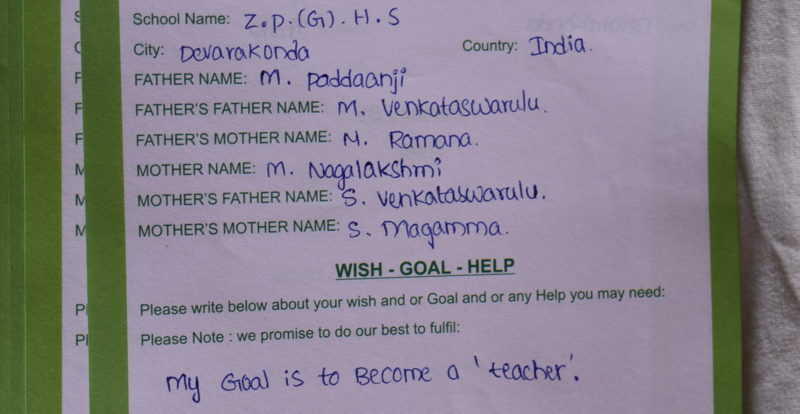 School Name: Z.P.(G).H.S
City: Devarakonda Country: India.
FATHER NAME: M. Paddaanji
FATHER'S FATHER NAME: M. Venkataswarulu.
FATHER'S MOTHER NAME: M. Ramana.
MOTHER NAME: M. Nagalakshmi
MOTHER'S FATHER NAME: S. Venkataswarulu.
MOTHER'S MOTHER NAME: S. Magamma.
WISH - GOAL - HELP
Please write below about your wish and or Goal and or any Help you may need:
Please Note : we promise to do our best to fulfil:
My Goal is to Become a 'teacher'.